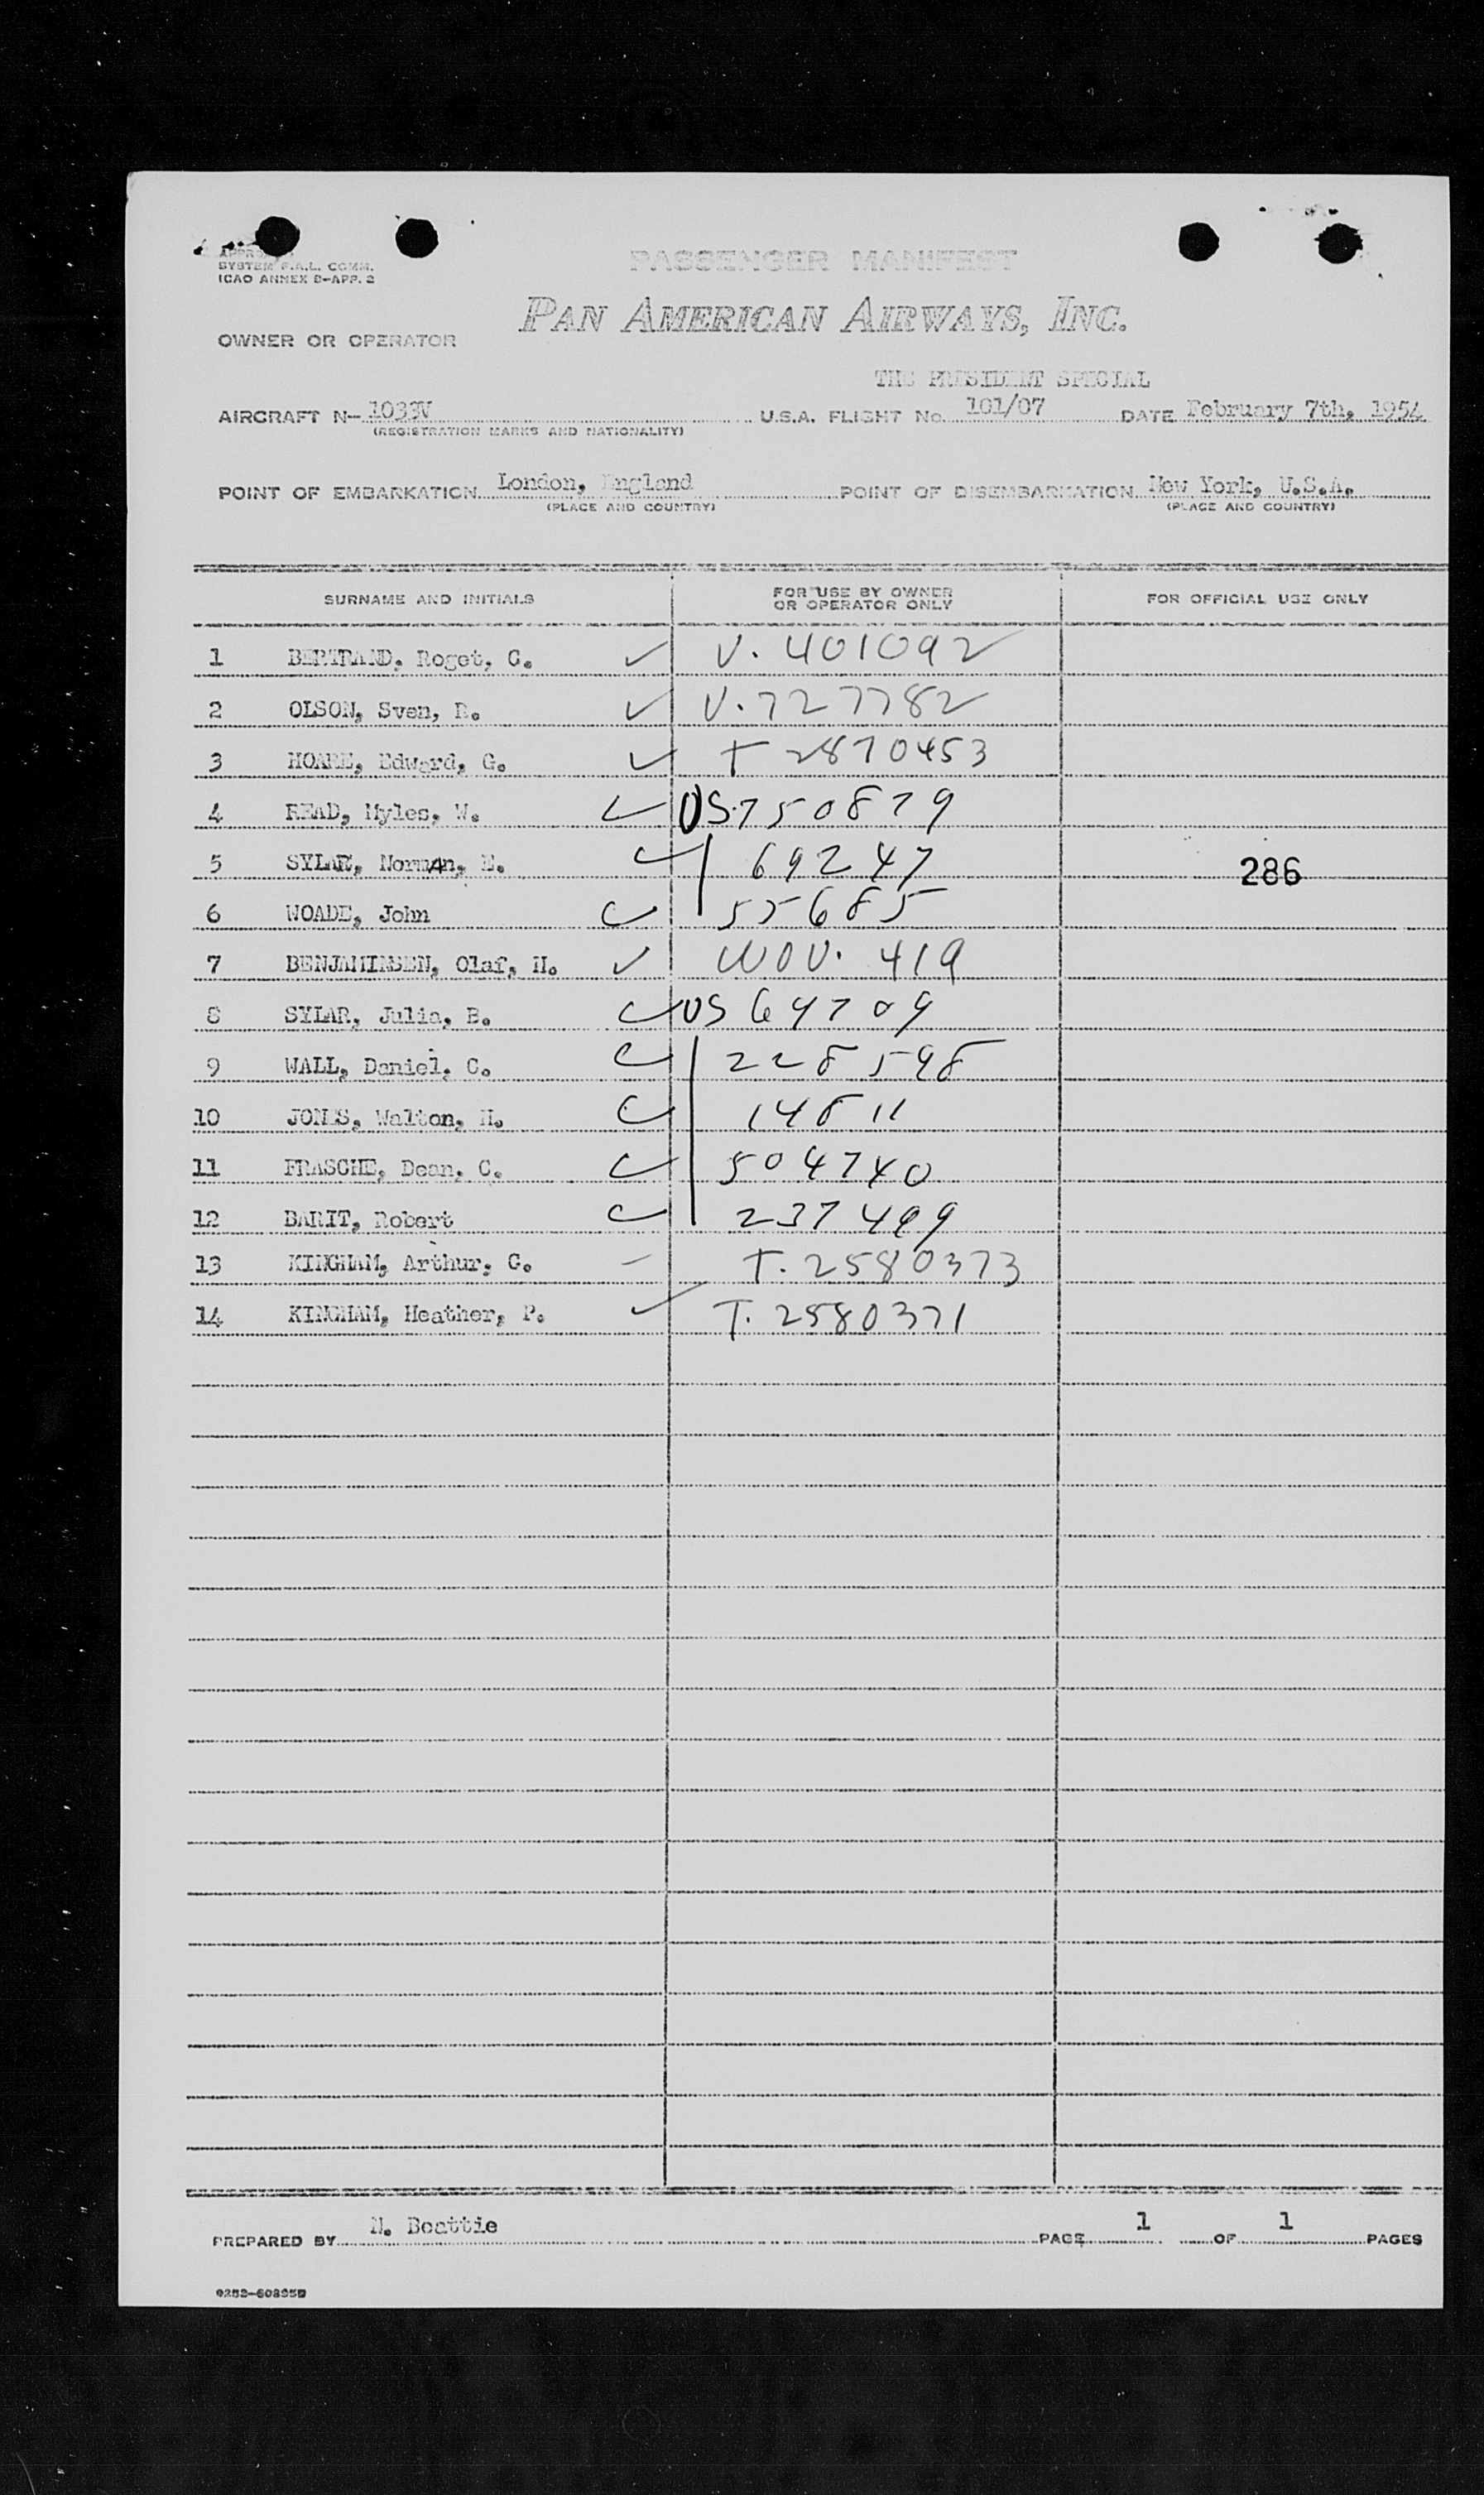 SYSTEM F.A.L. COMM.
ICAO ANNEX 9-APP. 2
PASSENGER MANIFEST
PAN AMERICAN AIRWAYS, INC.
OWNER OR OPERATOR
THE PRESIDENT SPECIAL
AIRCRAFT N- 1033V U.S.A. FLIGHT No. 101/07 DATE February 7th, 1954
(REGISTRATION MARKS AND NATIONALITY)
POINT OF EMBARKATION London, England POINT OF DISEMBARKATION New York, U.S.A.
(PLACE AND COUNTRY) (PLACE AND COUNTRY)
SURNAME AND INITIALS FOR USE BY OWNER OR OPERATOR ONLY FOR OFFICIAL USE ONLY
1 BERTRAND, Roget, C. ✓ V. 401092
2 OLSON, Sven, R. ✓ V. 727782
3 HOARE, Edward, G. ✓ T 2870453
4 READ, Myles, W. ✓ US 750879
5 SYLAR, Norman, E. ✓ 69247 286
6 WOADE, John ✓ 55685
7 BENJAMINSEN, Olaf, H. ✓ NOV. 419
8 SYLAR, Julia, B. ✓ US 69709
9 WALL, Daniel, C. ✓ 228598
10 JONES, Walton, H. ✓ 14811
11 FRASCHE, Dean, C. ✓ 504740
12 BARIT, Robert ✓ 237499
13 KINGHAM, Arthur, C. – T. 2580373
14 KINGHAM, Heather, P. ✓ T. 2580371
PREPARED BY N. Beattie PAGE 1 OF 1 PAGES